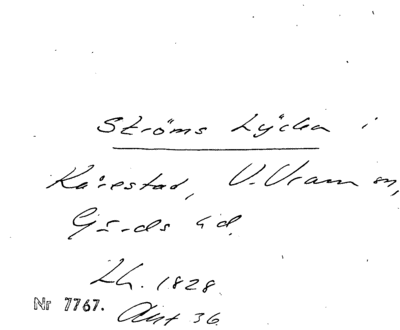 Ströms Lycka i
Kårestad, V. Vram sn,
Gärds hd.
Lh. 1828.
Nr 7767.
Akt 36